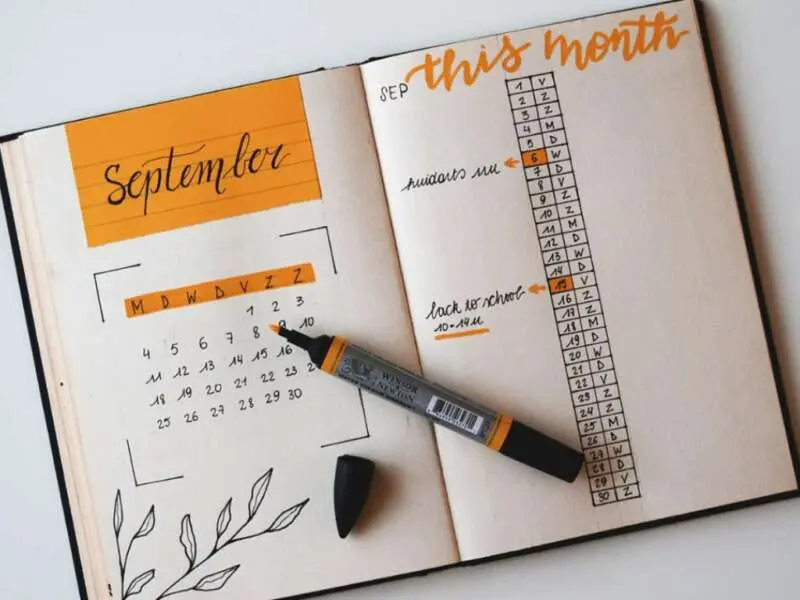 September
M D W D V Z Z
1 2 3
4 5 6 7 8 9 10
11 12 13 14 15 16
18 19 20 21 22 23
25 26 27 28 29 30
this month
SEP
1 V
2 Z
3 Z
4 M
5 D
6 W
7 D
8 V
9 Z
10 Z
11 M
12 D
13 W
14 D
15 V
16 Z
17 Z
18 M
19 D
20 W
21 D
22 V
23 Z
24 Z
25 M
26 D
27 W
28 D
29 V
30 Z
back to school
10-14u
WINSOR
& NEWTON